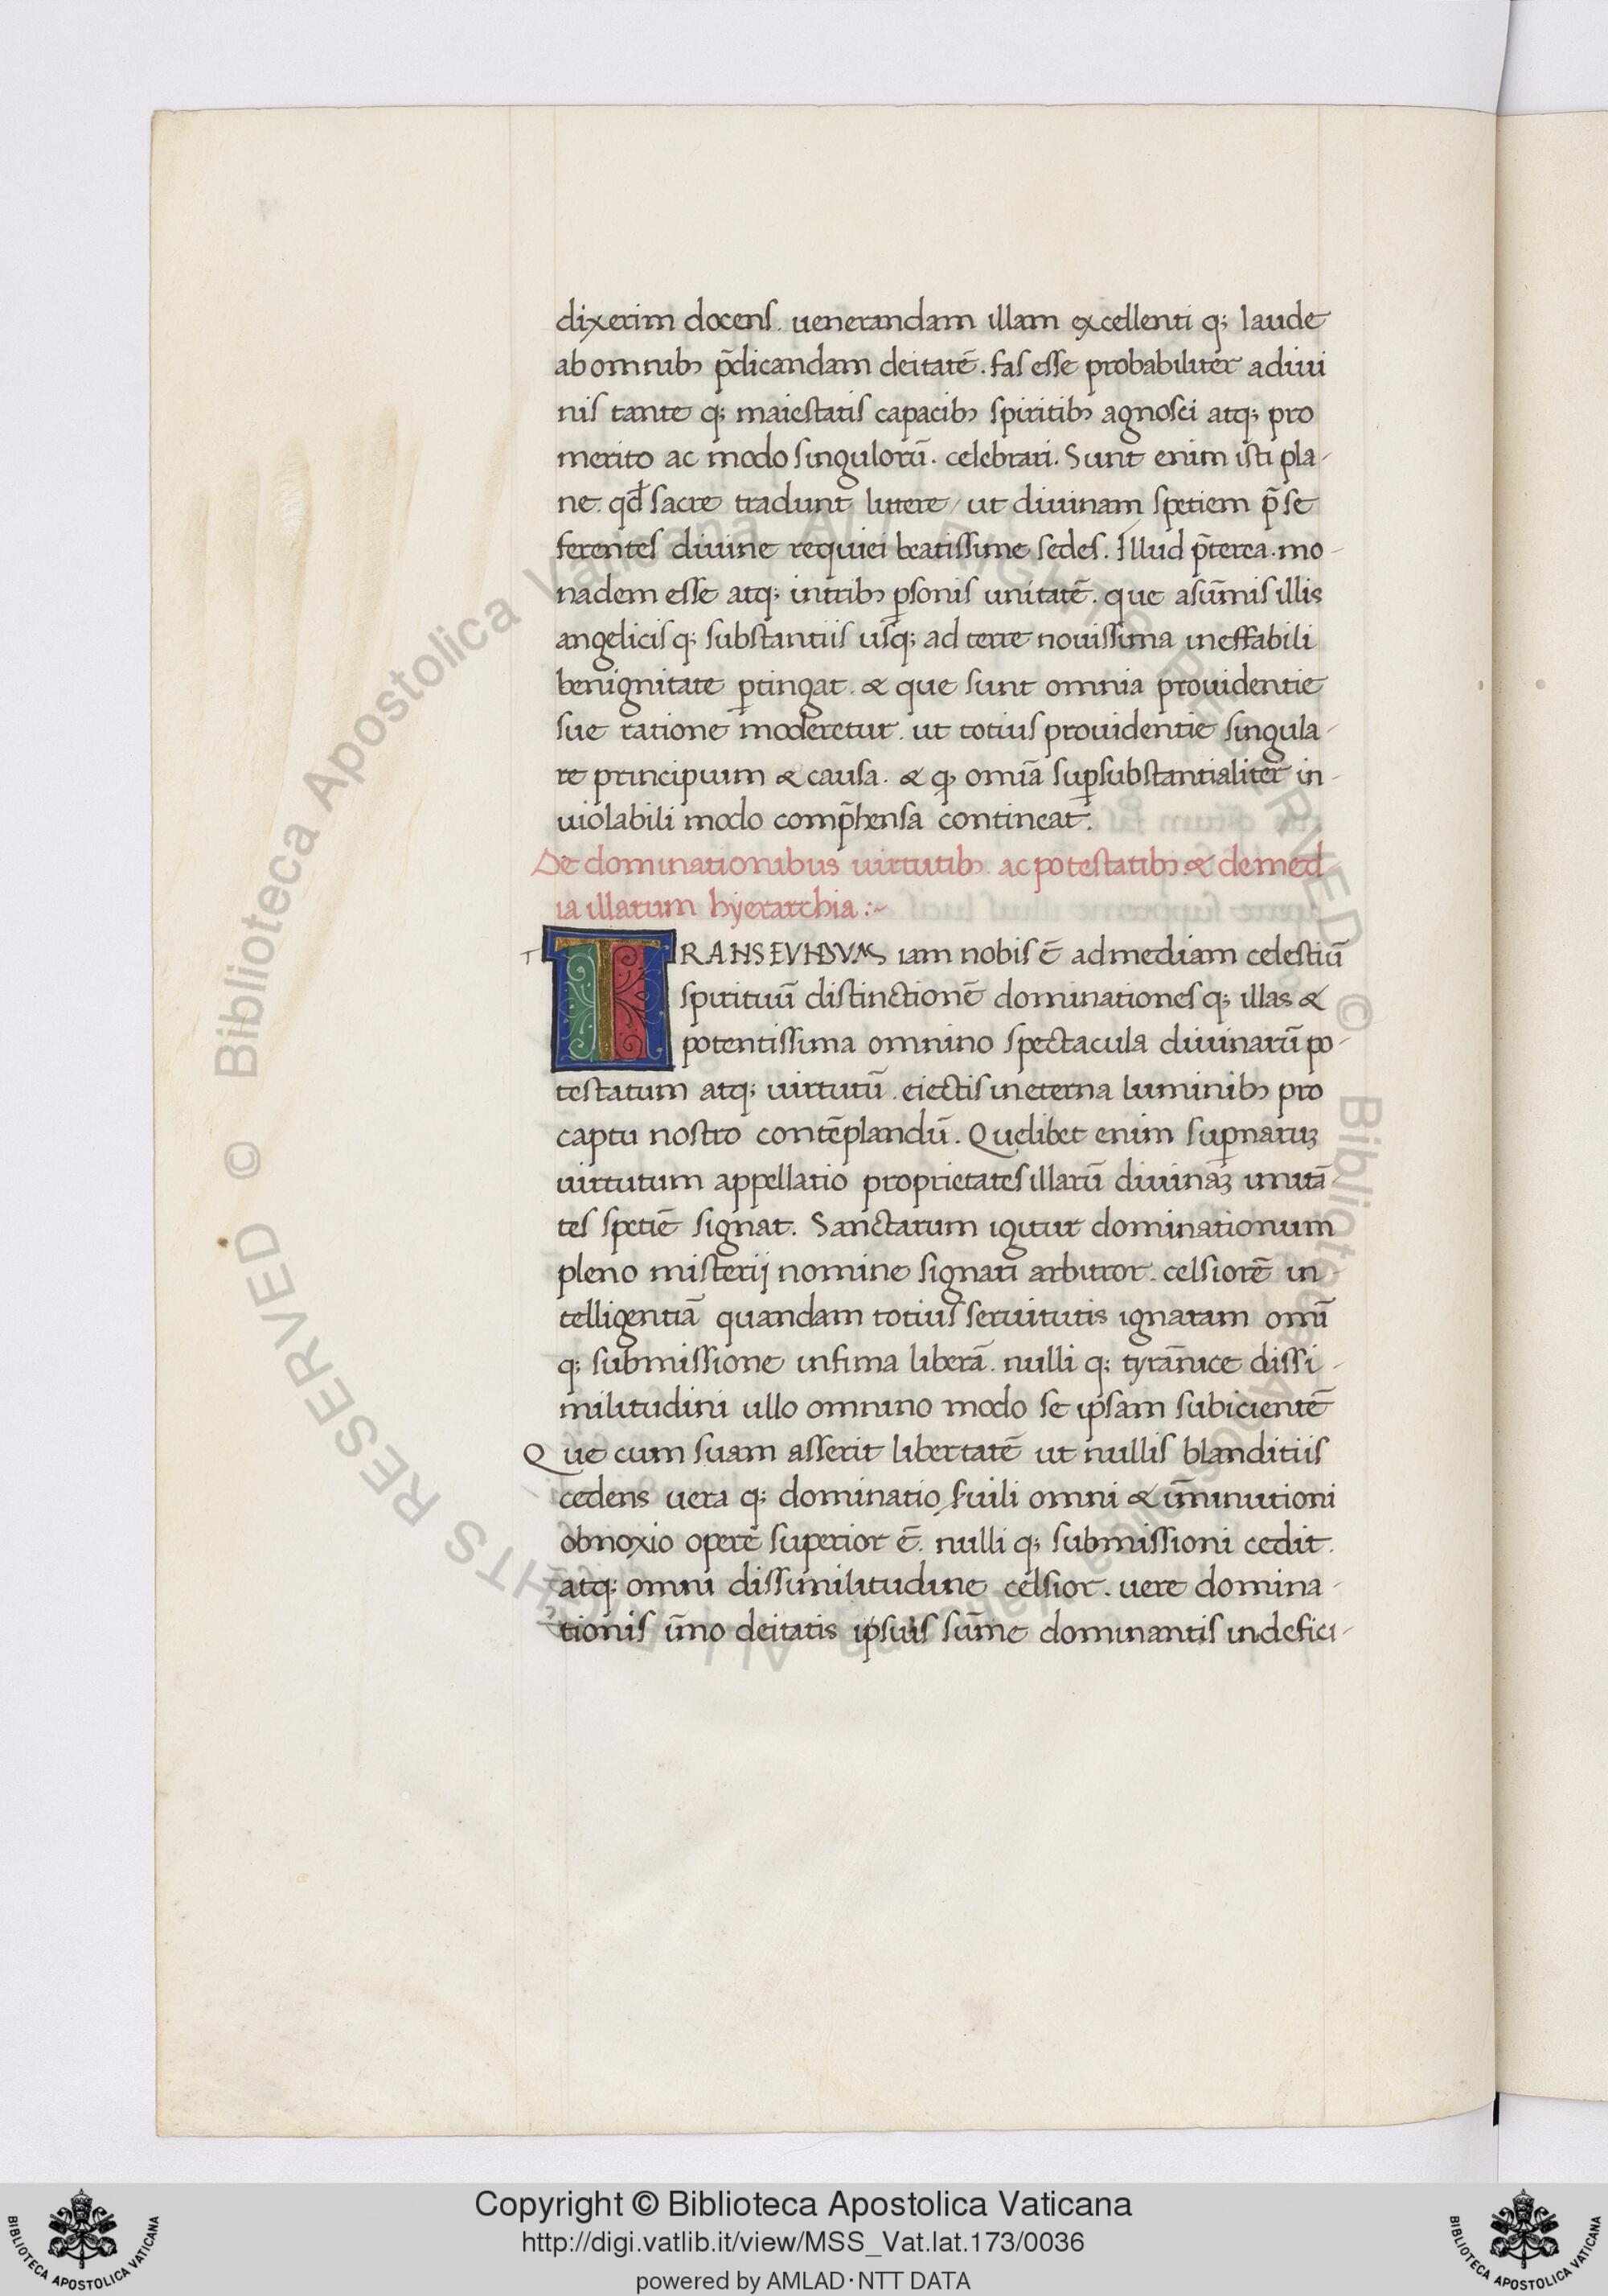 dixerim docens. uenerandam illam excellenti q; laude
ab omnibꝰ p̄dicandam deitatē. fas esse probabiliter a diui
nis tante q; maiestatis capacibꝰ spiritibꝰ agnosci atq; pro
merito ac modo singulorū. celebrari. Sunt enim isti pla-
ne. qd̄ sacre tradunt littere / ut diuinam spetiem p̄ se
ferentes diuine requiei beatissime sedes. Illud p̄terea. mo-
nadem esse atq; intribꝰ ꝑsonis unitatē. que asūmis illis
angelicis q; substantiis usq; ad terre nouissima ineffabili
benignitate ꝑtingat. & que sunt omnia prouidentie
sue ratione moderetur. ut totius prouidentie singula-
re principium & causa. & ꝙ omīa suꝑsubstantialiter in-
uiolabili modo comp̄hensa contineat.
De dominationibus uirtutibꝰ. ac potestatibꝰ. & de med-
ia illarum hyerarchia :~
T
TRANSEUNDUM iam nobis ē ad mediam celestiū
spirituū distinctionē dominationes q; illas &
potentissima omnino spectacula diuinarū po-
testatum atq; uirtutū. eiectis in eterna luminibꝰ pro
captu nostro contēplandū. Quelibet enim suꝑnaruꝫ
uirtutum appellatio proprietates illarū diuinaꝝ imitā-
tes spetiē signat. Sanctarum igitur dominationum
pleno misterij nomine signari arbitror. celsiorē in-
telligentiā quandam totius seruitutis ignaram omī
q; submissione infima liberā. nulli q; tyrānice dissi-
militudini ullo omnino modo se ipsam subicientē
Que cum suam asserit libertatē ut nullis blanditiis
cedens uera q; dominatio fuili omni & im̄inutioni
obnoxio opere superior ē. nulli q; submissioni cedit.
atq; omni dissimilitudine celsior. uere domina-
tionis īmo deitatis ipsius sūme dominantis indefici-
Copyright © Biblioteca Apostolica Vaticana
http://digi.vatlib.it/view/MSS_Vat.lat.173/0036
powered by AMLAD·NTT DATA
BIBLIOTECA APOSTOLICA VATICANA
BIBLIOTECA APOSTOLICA VATICANA